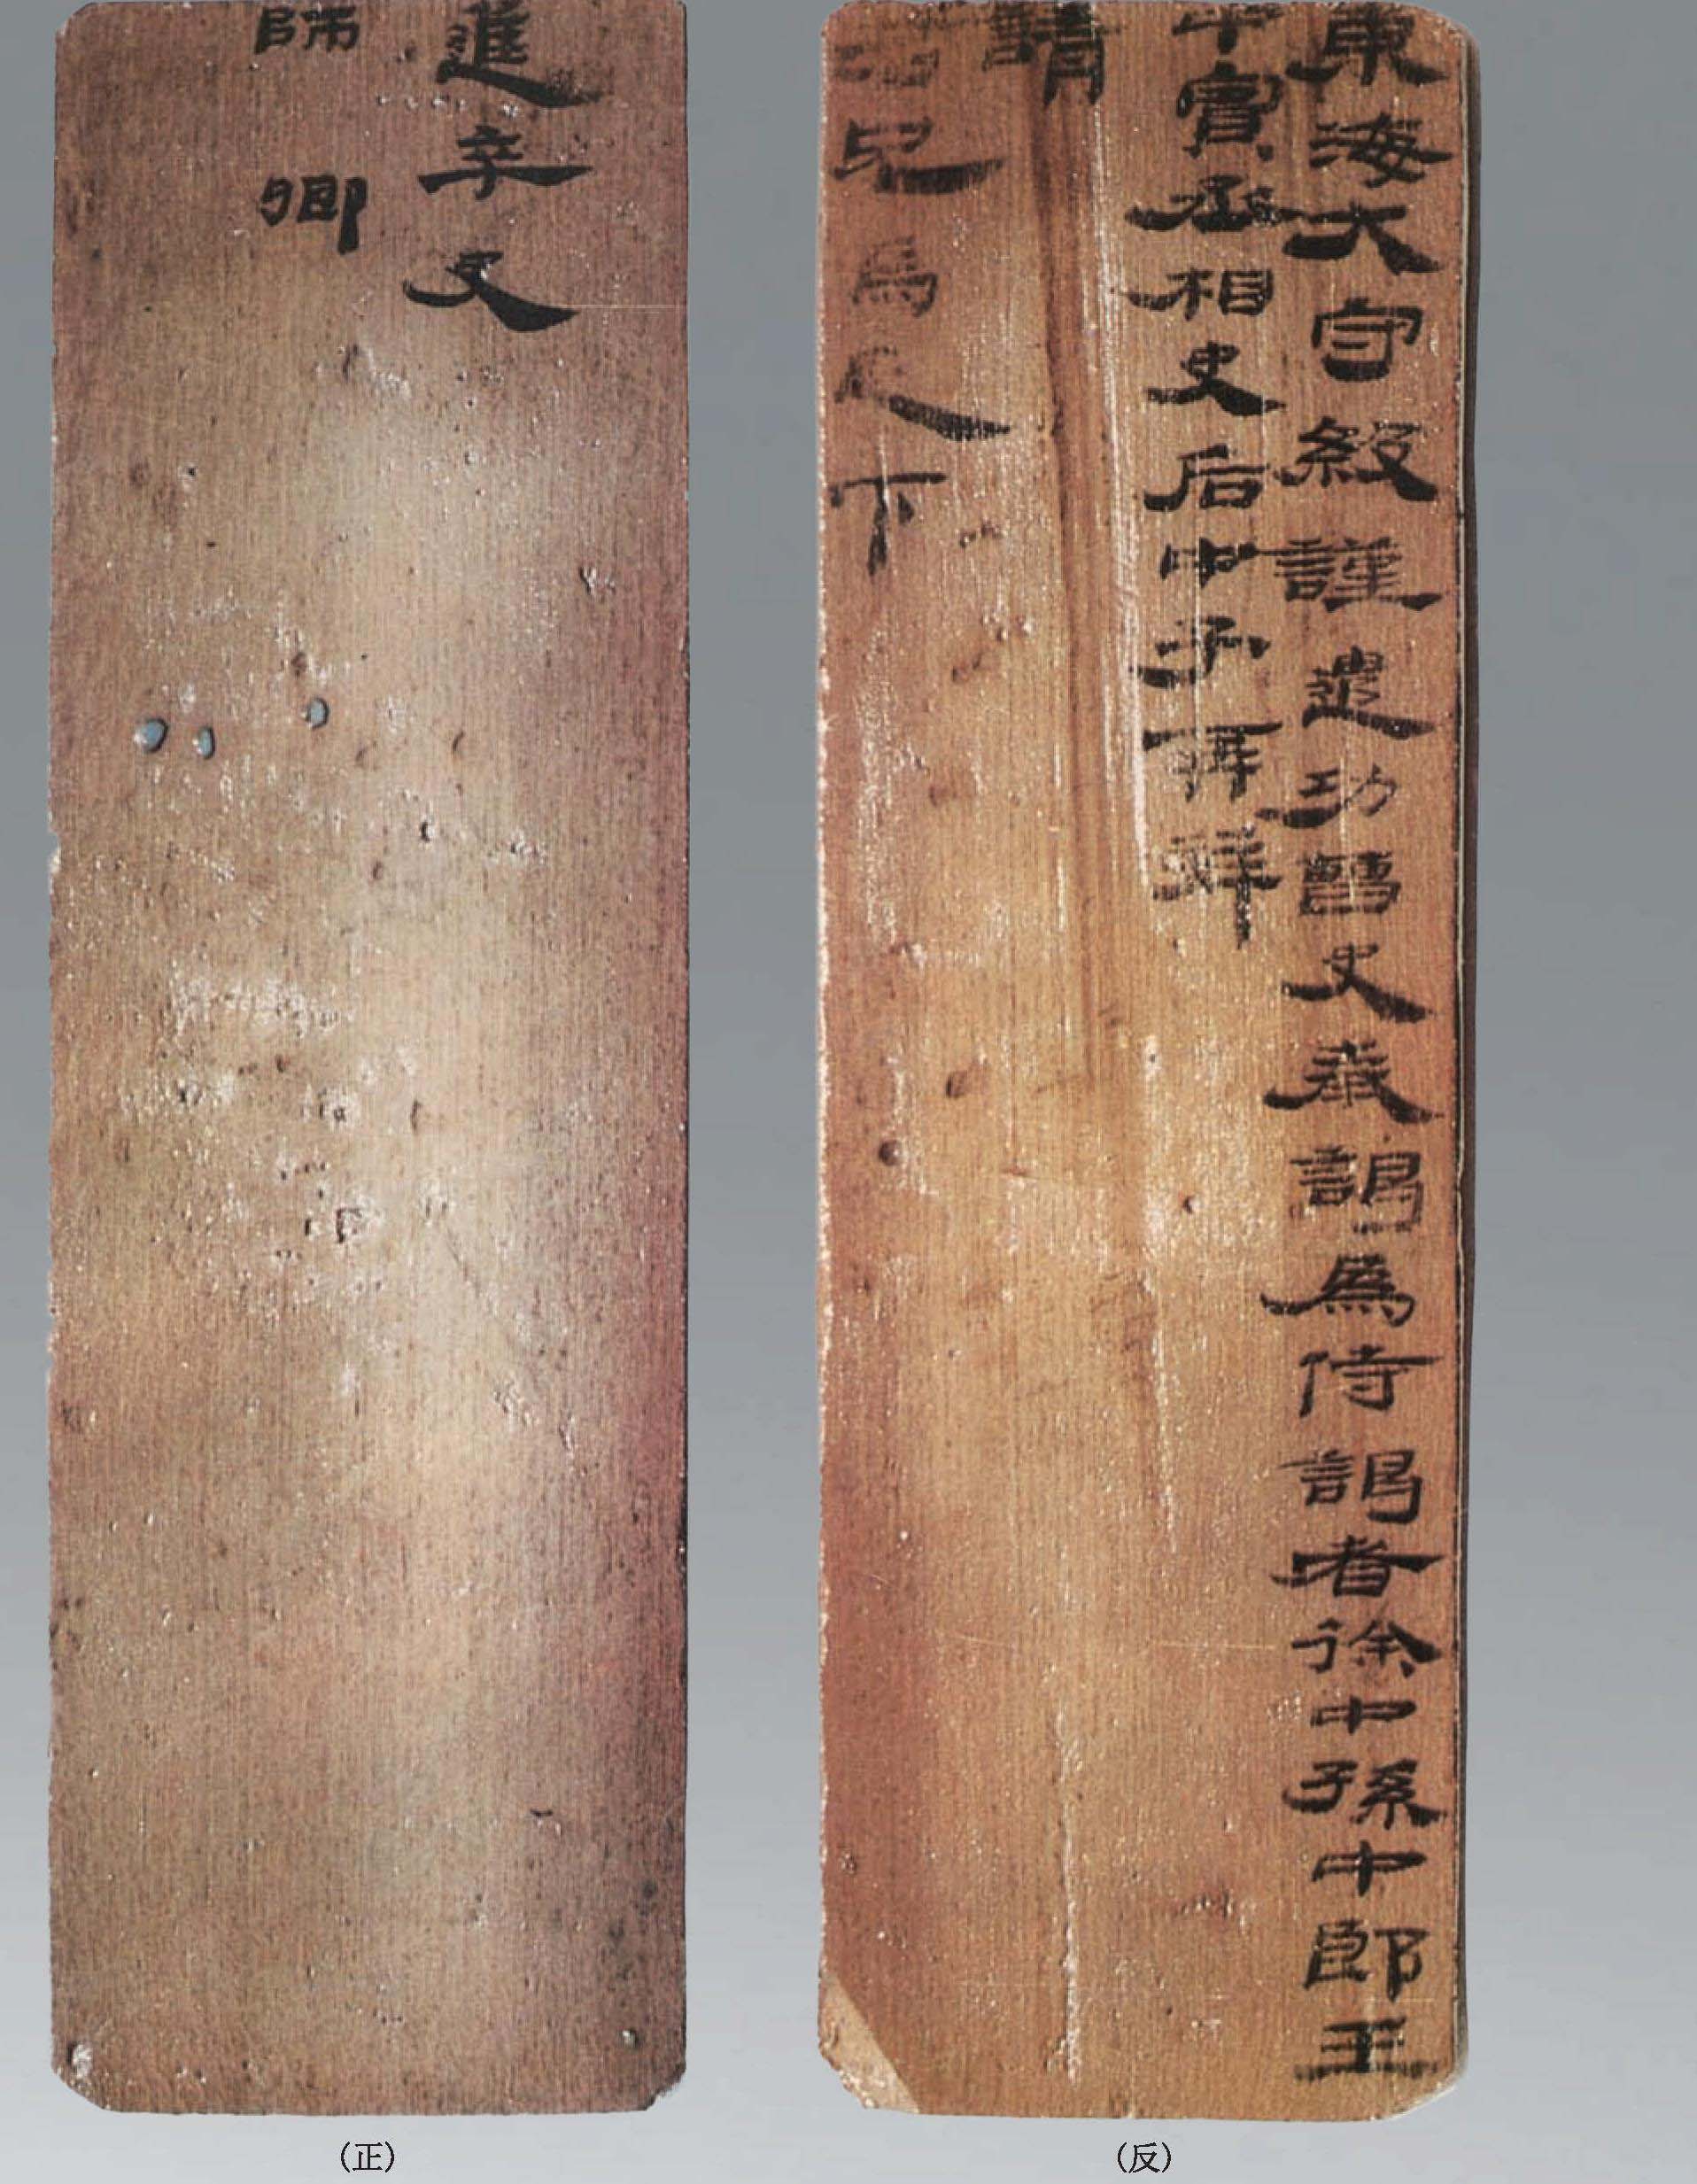 進卒史
師卿
東海大守級謹遣功曹史奉謁為侍謁者徐中孫中郎王
中賓丞相史后中子再拜
請
君兄馬足下
(正)
(反)